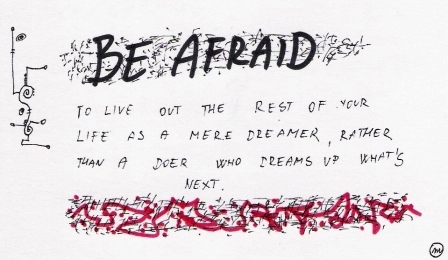 BE AFRAID
TO LIVE OUT THE REST OF YOUR
LIFE AS A MERE DREAMER, RATHER
THAN A DOER WHO DREAMS UP WHAT'S
NEXT.